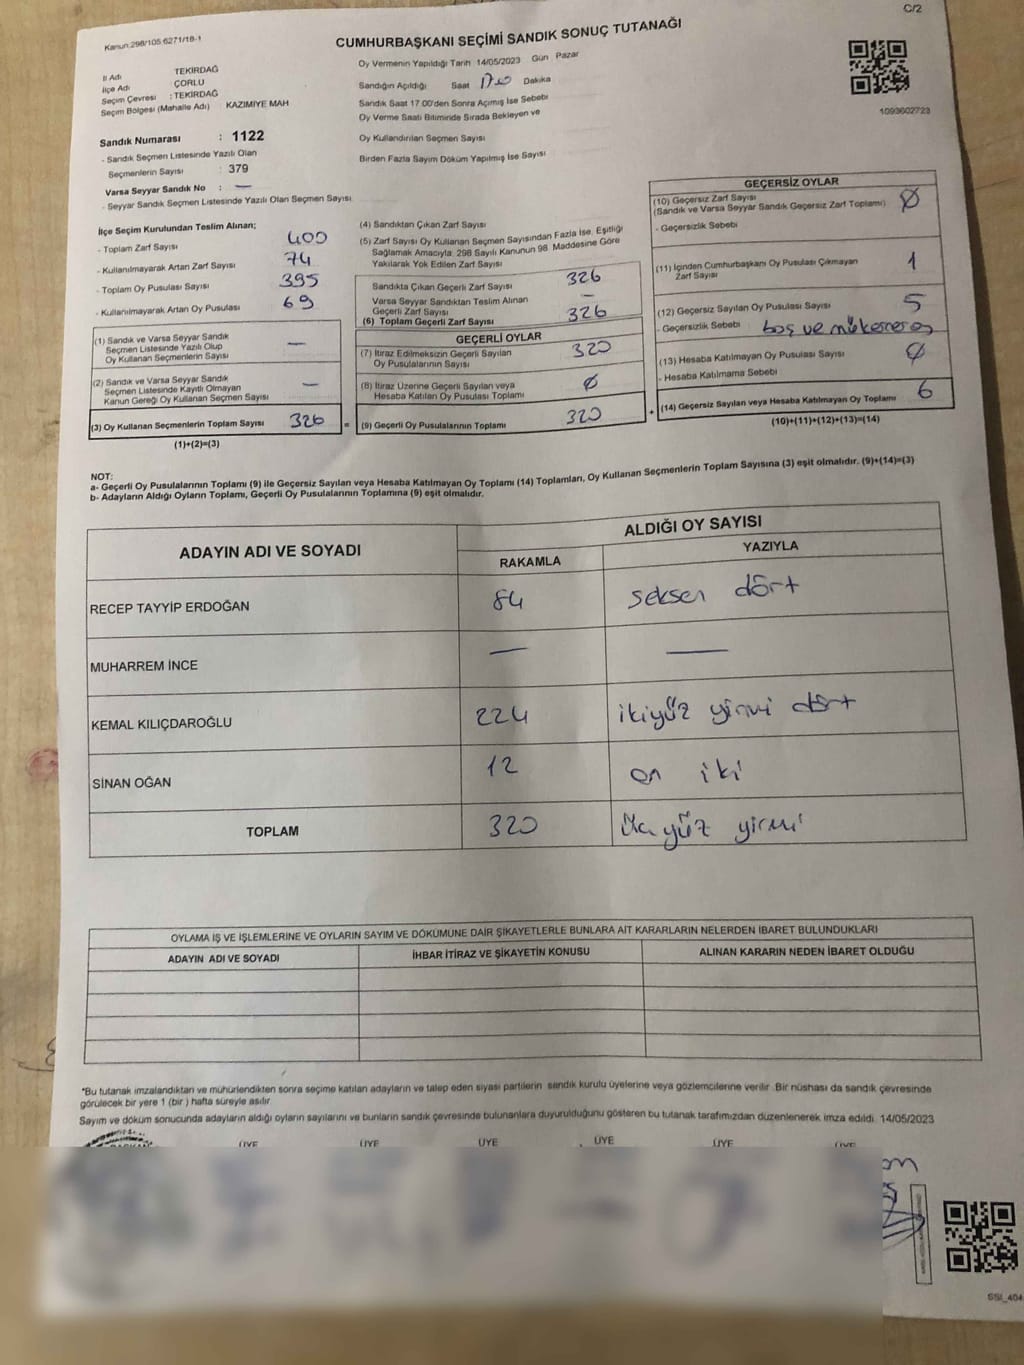 C/2
Kanun:298/105.6271/18-1
CUMHURBAŞKANI SEÇİMİ SANDIK SONUÇ TUTANAĞI
İl Adı TEKİRDAĞ
İlçe Adı ÇORLU
Seçim Çevresi : TEKİRDAĞ
Seçim Bölgesi (Mahalle Adı) KAZIMİYE MAH
Oy Vermenin Yapıldığı Tarih 14/05/2023 Gün Pazar
Sandığın Açıldığı Saat 17:00 Dakika
Sandık Saat 17.00'den Sonra Açımış İse Sebebi
Oy Verme Saati Bitiminde Sırada Bekleyen ve
Oy Kullandırılan Seçmen Sayısı
Birden Fazla Sayım Döküm Yapılmış İse Sayısı
1093602723
Sandık Numarası : 1122
- Sandık Seçmen Listesinde Yazılı Olan
Seçmenlerin Sayısı : 379
Varsa Seyyar Sandık No : —
- Seyyar Sandık Seçmen Listesinde Yazılı Olan Seçmen Sayısı
İlçe Seçim Kurulundan Teslim Alınan;
- Toplam Zarf Sayısı 400
- Kullanılmayarak Artan Zarf Sayısı 74
- Toplam Oy Pusulası Sayısı 395
- Kullanılmayarak Artan Oy Pusulası 69
(1) Sandık ve Varsa Seyyar Sandık
Seçmen Listesinde Yazılı Olup
Oy Kullanan Seçmenlerin Sayısı —
(2) Sandık ve Varsa Seyyar Sandık
Seçmen Listesinde Kayıtlı Olmayan
Kanun Gereği Oy Kullanan Seçmen Sayısı —
(3) Oy Kullanan Seçmenlerin Toplam Sayısı 326 =
(1)+(2)=(3)
(4) Sandıktan Çıkan Zarf Sayısı
(5) Zarf Sayısı Oy Kullanan Seçmen Sayısından Fazla İse, Eşitliği
Sağlamak Amacıyla, 298 Sayılı Kanunun 98. Maddesine Göre
Yakılarak Yok Edilen Zarf Sayısı
Sandıkta Çıkan Geçerli Zarf Sayısı 326
Varsa Seyyar Sandıktan Teslim Alınan
Geçerli Zarf Sayısı —
(6) Toplam Geçerli Zarf Sayısı 326
GEÇERLİ OYLAR
(7) İtiraz Edilmeksizin Geçerli Sayılan
Oy Pusulalarının Sayısı 320
(8) İtiraz Üzerine Geçerli Sayılan veya
Hesaba Katılan Oy Pusulası Toplamı 0
(9) Geçerli Oy Pusulalarının Toplamı 320 +
GEÇERSİZ OYLAR
(10) Geçersiz Zarf Sayısı
(Sandık ve Varsa Seyyar Sandık Geçersiz Zarf Toplamı) 0
- Geçersizlik Sebebi
(11) İçinden Cumhurbaşkanı Oy Pusulası Çıkmayan
Zarf Sayısı 1
(12) Geçersiz Sayılan Oy Pusulası Sayısı 5
- Geçersizlik Sebebi boş ve
(13) Hesaba Katılmayan Oy Pusulası Sayısı 0
- Hesaba Katılmama Sebebi
(14) Geçersiz Sayılan veya Hesaba Katılmayan Oy Toplamı 6
(10)+(11)+(12)+(13)=(14)
NOT:
a- Geçerli Oy Pusulalarının Toplamı (9) ile Geçersiz Sayılan veya Hesaba Katılmayan Oy Toplamı (14) Toplamları, Oy Kullanan Seçmenlerin Toplam Sayısına (3) eşit olmalıdır. (9)+(14)=(3)
b- Adayların Aldığı Oyların Toplamı, Geçerli Oy Pusulalarının Toplamına (9) eşit olmalıdır.
ADAYIN ADI VE SOYADI ALDIĞI OY SAYISI
RAKAMLA YAZIYLA
RECEP TAYYİP ERDOĞAN 84 seksen dört
MUHARREM İNCE — —
KEMAL KILIÇDAROĞLU 224 ikiyüz yirmi dört
SİNAN OĞAN 12 on iki
TOPLAM 320 üçyüz yirmi
OYLAMA İŞ VE İŞLEMLERİNE VE OYLARIN SAYIM VE DÖKÜMÜNE DAİR ŞİKAYETLERLE BUNLARA AİT KARARLARIN NELERDEN İBARET BULUNDUKLARI
ADAYIN ADI VE SOYADI İHBAR İTİRAZ VE ŞİKAYETİN KONUSU ALINAN KARARIN NEDEN İBARET OLDUĞU
*Bu tutanak imzalandıktan ve mühürlendikten sonra seçime katılan adayların ve talep eden siyasi partilerin sandık kurulu üyelerine veya gözlemcilerine verilir. Bir nüshası da sandık çevresinde
görülecek bir yere 1 (bir ) hafta süreyle asılır.
Sayım ve döküm sonucunda adayların aldığı oyların sayılarını ve bunların sandık çevresinde bulunanlara duyurulduğunu gösteren bu tutanak tarafımızdan düzenlenerek imza edildi. 14/05/2023
ÜYE ÜYE ÜYE ÜYE ÜYE ÜYE
SSI_404